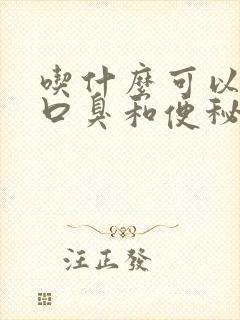 喫什麼可以
口臭和便秘
汪正發